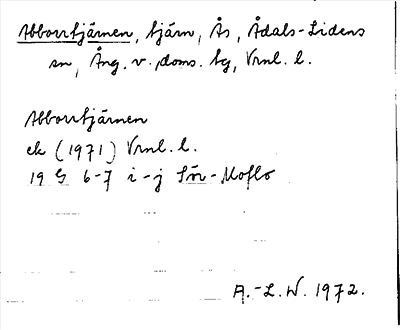 Abborrtjärnen, tjärn, Ås, Ådals-Lidens
sn, Ång. v. doms. tg, Vrnl. l.
Abborrtjärnen
ek (1971) Vrnl. l.
19 G 6-7 i-j Sör-Moflo
A.-L. W. 1972.